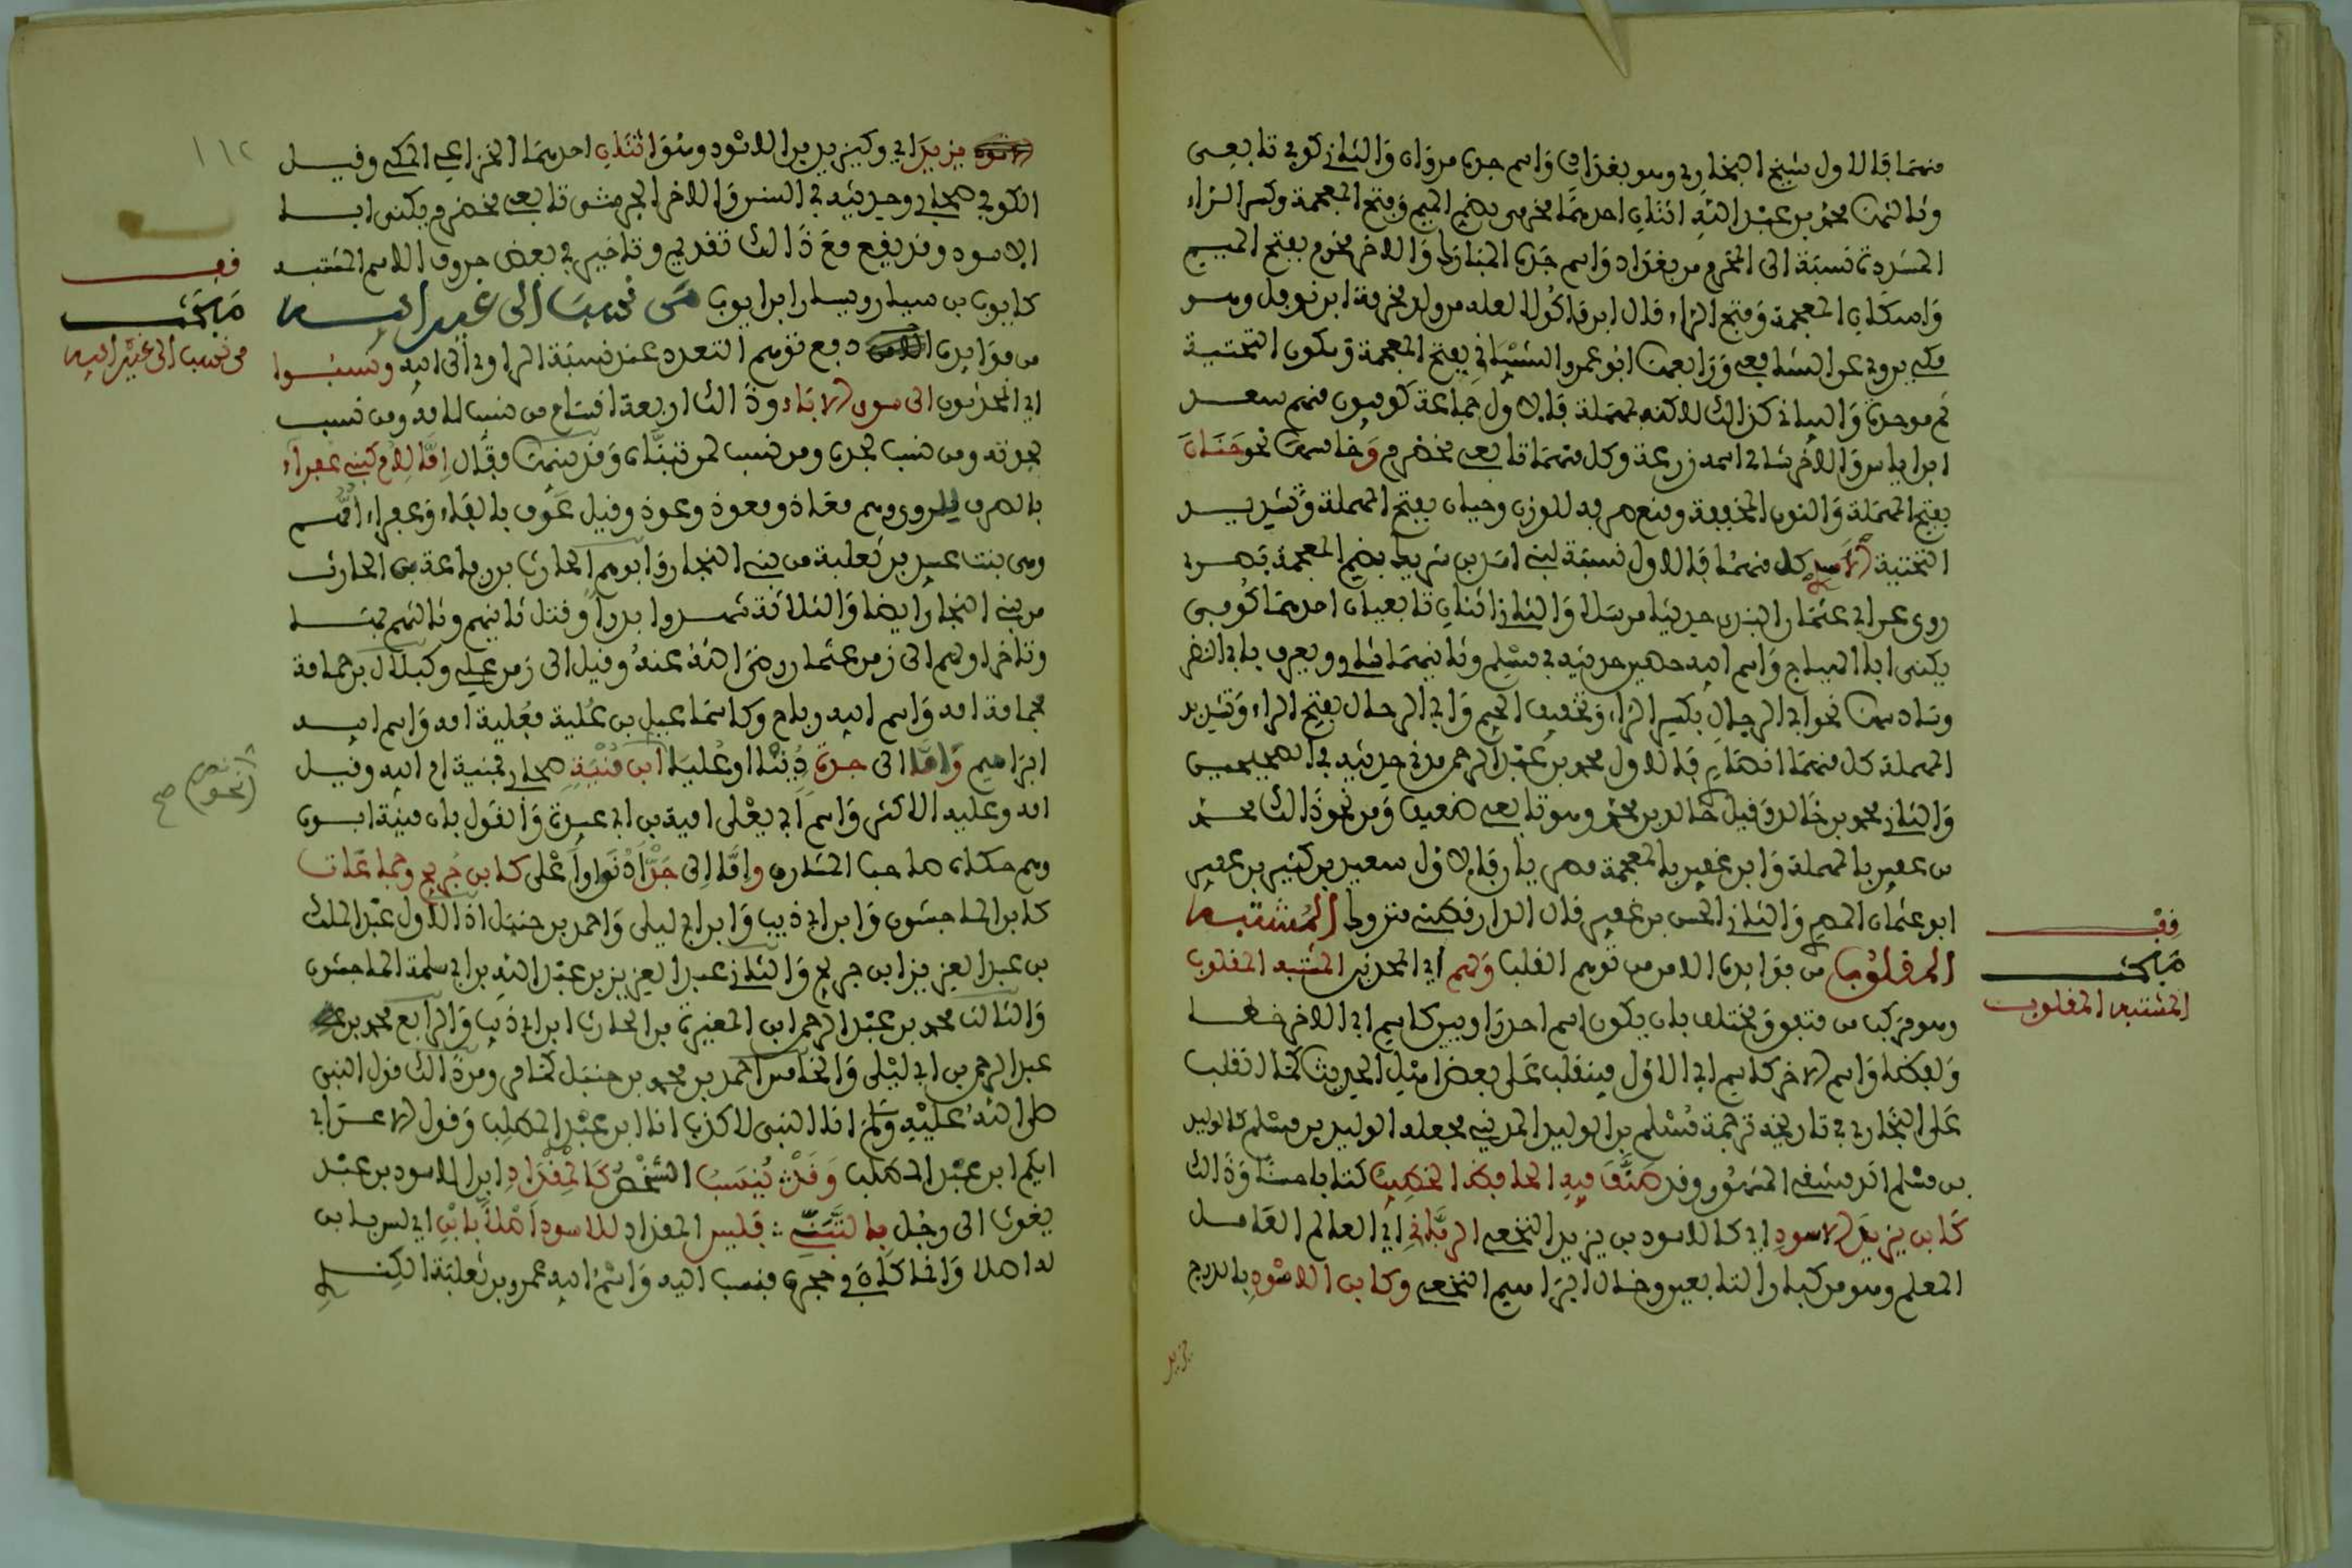 منهما فالاول شيخ البخاري وهو بغدادي واسم جده مروان والثاني كوفي تابعي
وثالثها محمد بن عبد الله اثنان احدهما مخرمي بضم الميم وفتح المعجمة وكسر الراء
المشددة نسبة الى المخرم من بغداد واسم جده المبارك والاخر مخرمي بفتح الميم
واسكان المعجمة وفتح الراء قال ابن ماكولا لعله من ولد مخرمة ابن نوفل وهو
مكي يروي عن الشافعي ورابعها ابو عمرو الشيباني بفتح المعجمة وسكون التحتية
ثم موحدة والسيباني كذالك لاكنه بمهملة فالاول جماعة كوفيون منهم سعد
ابن اياس والاخر شامي اسمه زرعة وكل منهما تابعي مخضرم وخامسها نحو حنان
بفتح المهملة والنون المخففة ومنع صرفه للوزن وحيان بفتح المهملة وتشديد
التحتية الاسدي كل منهما فالاول نسبة لبني اسد بن شريك بضم المعجمة بصري
روى عن ابي عثمان النهدي حديثا مرسلا والثاني اثنان تابعيان احدهما كوفي
يكنى ابا الهياج واسم ابيه حصين حديثه في مسلم وثانيهما شامي ويعرف بابي النضر
وسادسها نحو ابي الرجال بكسر الراء وتخفيف الجيم وابي الرحال بفتح الراء وتشديد
المهملة كل منهما انصاري فالاول محمد بن عبد الرحمن مدني حديثه في الصحيحين
والثاني محمد بن خالد وقيل خالد بن محمد وهو تابعي ضعيف ومن نحو ذالك محمد
بن عفير بالمهملة وابن غفير بالمعجمة مصريان فالاول سعيد بن كثير بن عفير
ابو عثمان المصري والثاني الحسن بن غفير قال الدارقطني متروك المشتبه
المقلوب من فوائده الامن من توهم القلب ولهم اي المحدثين المشتبه المقلوب
وهو مركب من متفق ومختلف بان يكون اسم احد راويين كاسم اب الاخر خطا
ولفظا واسم الاخر كاسم اب الاول فينقلب على بعض اهل الحديث كما انقلب
على البخاري في تاريخه ترجمة مسلم بن الوليد المدني فجعله الوليد بن مسلم كالوليد
بن مسلم الدمشقي المشهور وقد صنف فيه الحافظ الخطيب كتابا حسنا وذالك
كابن يزيد الاسود اي كالاسود بن يزيد النخعي الرباني اي العالم العامل
المعلم وهو من كبار التابعين وخال ابراهيم النخعي وكابن الاسود بالدرج
يزيد
فف
على
المشتبه المقلوب
يزيد اي وكيزيد بن الاسود وهو اثنان احدهما الخزاعي المكي وقيل
الكوفي صحابي وحديثه في السنن والاخر الجرشي تابعي مخضرم يكنى ابا
الاسود وقد يقع مع ذالك تقديم وتاخير في بعض حروف الاسم المشتبه
كايوب بن سيار ويسار ابن ايوب من نسب الى غير ابيه
من فوائده دفع توهم التعدد عند نسبة الراوي الى ابيه ونسبوا
اي المحدثون الى سوى الاباء وذالك اربعة اقسام من نسب لامه ومن نسب
لجدته ومن نسب لجده ومن نسب لمن تبناه وقد بينها فقال اما لام كبني عفراء
بالصرف للروي وهم معاذ ومعوذ وعوذ وقيل عوف بالفاء وعفراء امهم
وهي بنت عبيد بن ثعلبة من بني النجار وابوهم الحارث بن رفاعة بن الحارث
من بني النجار ايضا والثلاثة شهدوا بدرا وقتل ثانيهم وثالثهم بها
وتاخر اولهم الى زمن عثمان رضي الله عنه وقيل الى زمن علي وكبلال بن حمامة
فحمامة امه واسم ابيه رباح وكاسماعيل بن علية فعلية امه واسم ابيه
ابراهيم واما الى جدة دنيا او عليا ابن منية صحابي فمنية ام ابيه وقيل
امه وعليه الاكثر واسم ابي يعلى امية بن ابي عبيدة والقول بان منية ابوه
وهم حكاه صاحب المشارق واما الى جد ادنوا وا على كابن جريج وجماعات
كابن الماجشون وابن ابي ذيب وابن ابي ليلى واحمد بن حنبل اذ الاول عبد الملك
بن عبد العزيز ابن جريج والثاني عبد العزيز بن عبد الله بن ابي سلمة الماجشون
والثالث محمد بن عبد الرحمن ابن المغيرة بن الحارث ابن ابي ذيب والرابع محمد بن
عبد الرحمن بن ابي ليلى والخامس احمد بن محمد بن حنبل كما مر ومن ذالك قول النبي
صلى الله عليه وسلم انا النبي لا كذب انا ابن عبد المطلب وقول الاعرابي
ايكم ابن عبد المطلب وقد ينسب الشخص كالمقداد ابن الاسود بن عبد
يغوث الى رجل بالتبني فليس المقداد للاسود اصلا بابن اي ليس بابن
له اصلا وانما كان في حجره فنسب اليه واسم ابيه عمرو بن ثعلبة الكندي
١١٢
فف
على
من نسب الى غير ابيه
(نحو) صح